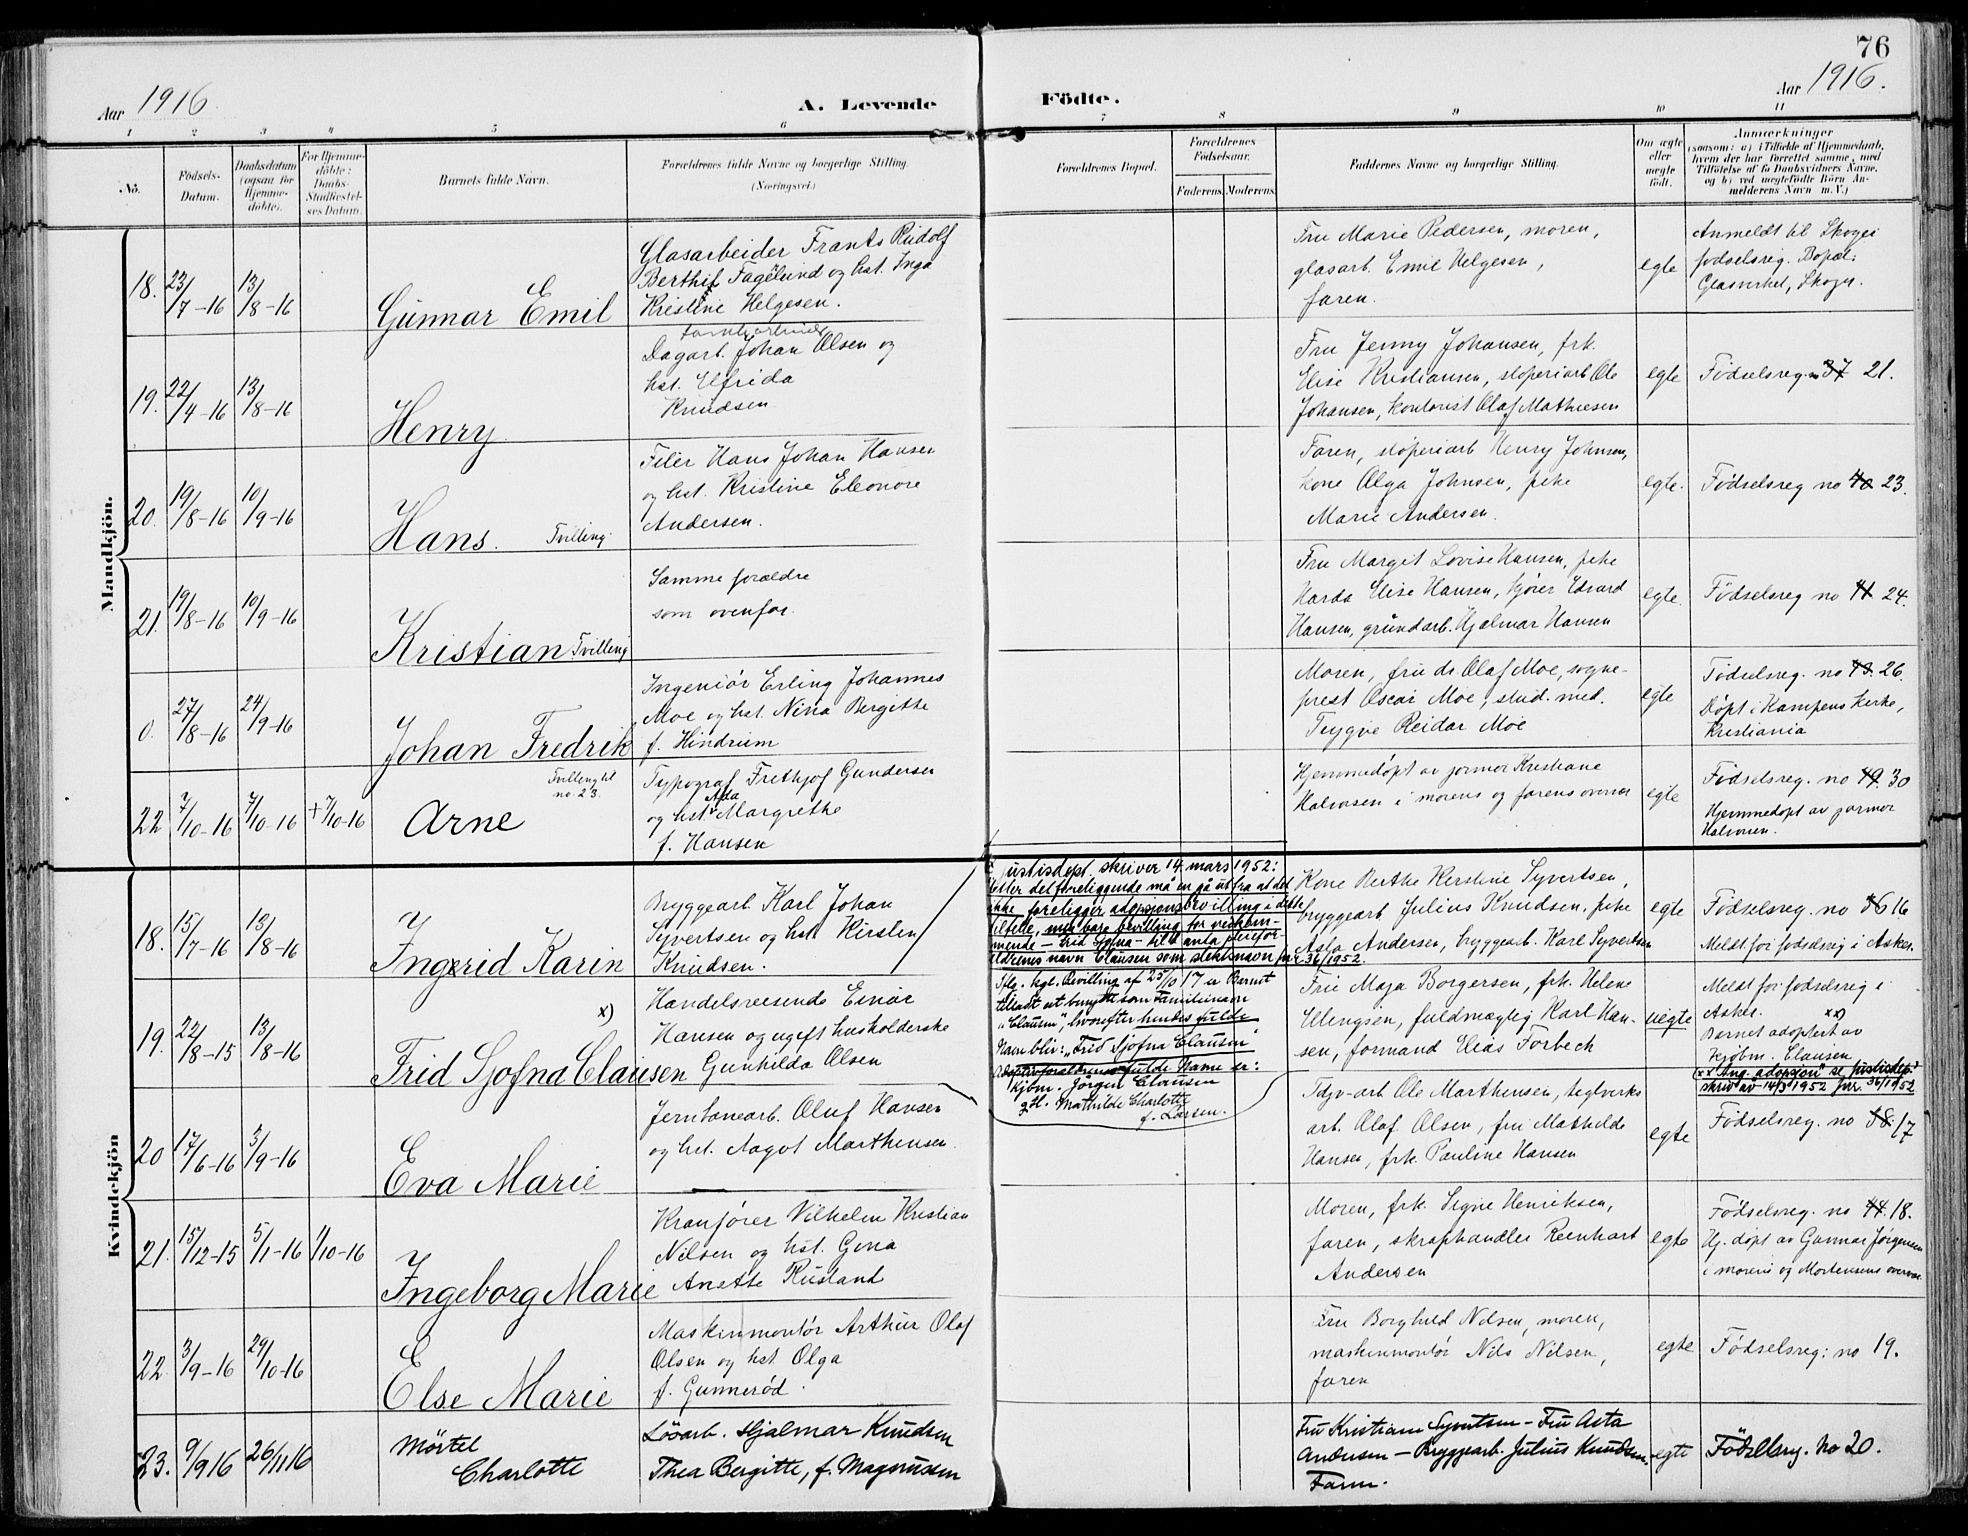 76
Aar 1916
A. Levende
Födte.
Aar 1916.
1 2 3 4 5 6 7 8 9 10 11
No.
Födsels-
Datum.
Daabsdatum
(ogsaa for
Hjemme-
döbte).
For Hjemme-
döbte:
Daabs-
Stadfæstel-
ses Datum.
Barnets fulde Navn.
Forældrenes fulde Navne og borgerlige Stilling.
(Næringsvei.)
Forældrenes Bopæl.
Forældrenes
Födselsaar.
Faderens. Moderens.
Faddernes Navne og borgerlige Stilling.
Om ægte
eller
uægte
födt.
Anmærkninger
(saasom: a) i Tilfælde af Hjemmedaab,
hvem der har forrettet samme, med
Tilföielse af to Daabsvidners Navne,
og b) ved uægtefödte Börn An-
melderens Navn m. V.)
Mandkjön.
18. 23/7-16 13/8-16
Gunnar Emil
Glasarbeider Frants Rudolf
Berthif Fagelund og hst. Inga
Kristine Helgesen.
Fru Marie Pedersen, moren,
glasarb. Emil Helgesen,
faren.
egte
Anmeldt til Skoger
fødselsreg. Bopæl:
Glasverket, Skoger.
19. 22/4-16 13/8-16
Henry
Dagarb. Johan Olsen og
hst. Elfrida
Knudsen
Fru Jenny Johansen, frk.
Elise Kristiansen, støperiarb Ole
Johansen, kontorist Olaf Mathiesen
egte
Fødselsreg. 37 21.
20. 19/8-16 10/9-16
Hans. Tvilling.
Filer Hans Johan Hansen
og hst. Kristine Eleonore
Andersen.
Faren, støperiarb Henry Johnsen,
kone Olga Johnsen, pike
Marie Andersen.
egte.
Fødselsreg no 40 23.
21. 19/8-16 10/9-16
Kristian Tvilling
Samme forældre
som ovenfor.
Fru Margit Lovise Hansen, pike
Harda Elise Hansen, kjører Edvard
Hansen, grundarb. Hjalmar Hansen
egte.
Fødselsreg no 41 24.
0. 27/8-16 24/9-16
Johan Fredrik
Ingeniør Erling Johannes
Moe og hst. Nina Bergitte
f. Hindrum
Moren, fru ds. Olaf Moe, sogne-
prest Oscar Moe, stud. med.
Trygve Reidar Moe
egte
Fødselsreg. no 43. 26.
Døpt i Kampens kirke,
Kristiania
22 7/10-16 7/10-16 +7/10-16
Tvilling til
no 23.
Arne
Typograf Frithjof Gundersen
og hst. Ada Margrethe
f. Hansen
Hjemmedøpt av farmor Kristiane
Halvorsen i morens og farens overvær
egte
Fødselsreg. no 49. 30
Hjemmedøpt av farmor
Halvorsen.
Kvindekjön
18. 15/7-16 13/8-16
Ingerid Karin
Bryggearb. Karl Johan
Syvertsen og hst. Kirsten
Knudsen.
Justisdept. skriver 14 mars 1952:
Etter det foreliggende må en gå ut fra at det
ikke foreligger adopsjonsbevilling i dette
tilfelle, men bare bevilling for vedkom-
mende - Frid Sjofna - til å anta pleiefor-
eldrenes navn Clausen som slektsnavn jnr. 36/1952.
Kone Berthe Kirstine Syvertsen,
bryggearb Julius Knudsen, pike
Asta Andersen, bryggearb. Karl Syvertsen
egte
Fødselsreg. no 16
Meldt for fødselsreg i Asker.
19. 22/8-15 13/8-16
x)
Frid Sjofna Clausen
Handelsreisende Einar
Hansen og ugift husholderske
Gunhilda Olsen
Iflg. kgl. Bevilling af 25/10 17 er Barnet
tilladt at benytte som Familienavn
"Clausen", hvorefter hendes fulde
Navn blir: "Frid Sjofna Clausen"
Adoptivforældrenes fulde Navne er:
Kjbm. Jørgen Clausen
g H. Mathilde Charlotte
f. Larsen.
Frk Maja Borgersen, frk. Helene
Ellingsen, fuldmægtig Karl Han-
sen, formand Elias Forbech
uegte
Meldt for fødselsreg i
Asker. xx)
Barnet adoptert av
kjøbm. Clausen
xx Ang. adopsjon" se justisdep.s
skriv av 14/3 1952 jnr. 36/1952
20 17/6-16 3/9-16
Eva Marie
Jerntanearb. Oluf Hansen
og hst. Aagot Marthinsen.
Tdjv-arb Ole Marthinsen, teglverks
arb. Olaf Olsen, fru Mathilde
Hansen, frk. Pauline Hansen
egte
Fødselsreg. no 38. 17
21. 15/12-15 5/1-16 1/10-16
Ingeborg Marie
Kranfører Vilhelm Kristian
Nilsen og hst. Gina
Anette Rusland
Moren, frk. Signe Henriksen,
faren, skraphandler Reinhart
Andersen
egte
Fødselsreg. no 44. 18.
Hj. døpt av Gunnar Jørgensen
i morens og Mortensens overvær
22. 3/9-16 29/10-16
Else Marie
Maskinmontør Arthur Olaf
Olsen og hst. Olga
f. Gunnerød.
Fru Borghild Nilsen, moren,
maskinmontør Nils Nilsen,
faren
egte
Fødselsreg: no 19.
23. 9/9 16 26/11 16
Mörtel
Charlotte
Lösarb. Hjalmar Knudsen
Thea Bergitte, f. Magnussen
Fru Kristiane Syvertsen - Fru Asta
Andersen - Bryggearb. Julius Knudsen.
Faren.
egte
Födselsreg. No 20.